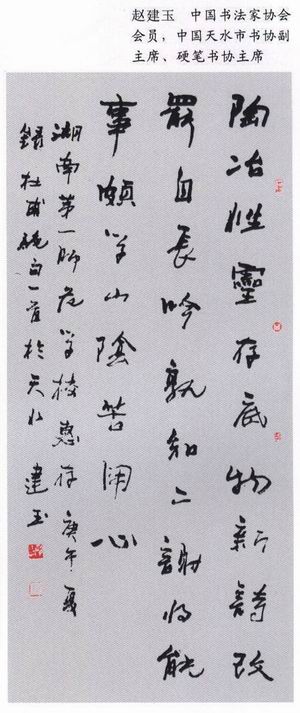 赵建玉 中国书法家协会
会员，中国天水市书协副
主席、硬笔书协主席
陶冶性靈存底物新詩改
罷自長吟孰知二謝將能
事頗学山陰苦用心
湖南第一師范学校惠存 庚午夏
錄杜甫絕句一首於天水 建玉